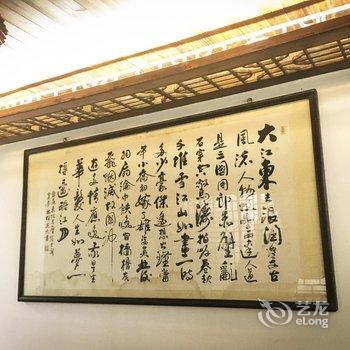 大江東去浪淘盡千古
風流人物故壘西邊人道
是三國周郎赤壁亂
石穿空驚濤拍岸卷起
千堆雪江山如畫一時
多少豪傑遙想公瑾當
年小喬初嫁了雄姿英發
羽扇綸巾談笑間檣櫓灰
飛烟滅故國神
遊多情應笑我早生
華髮人生如夢一
樽還酹江月
艺龙
eLong